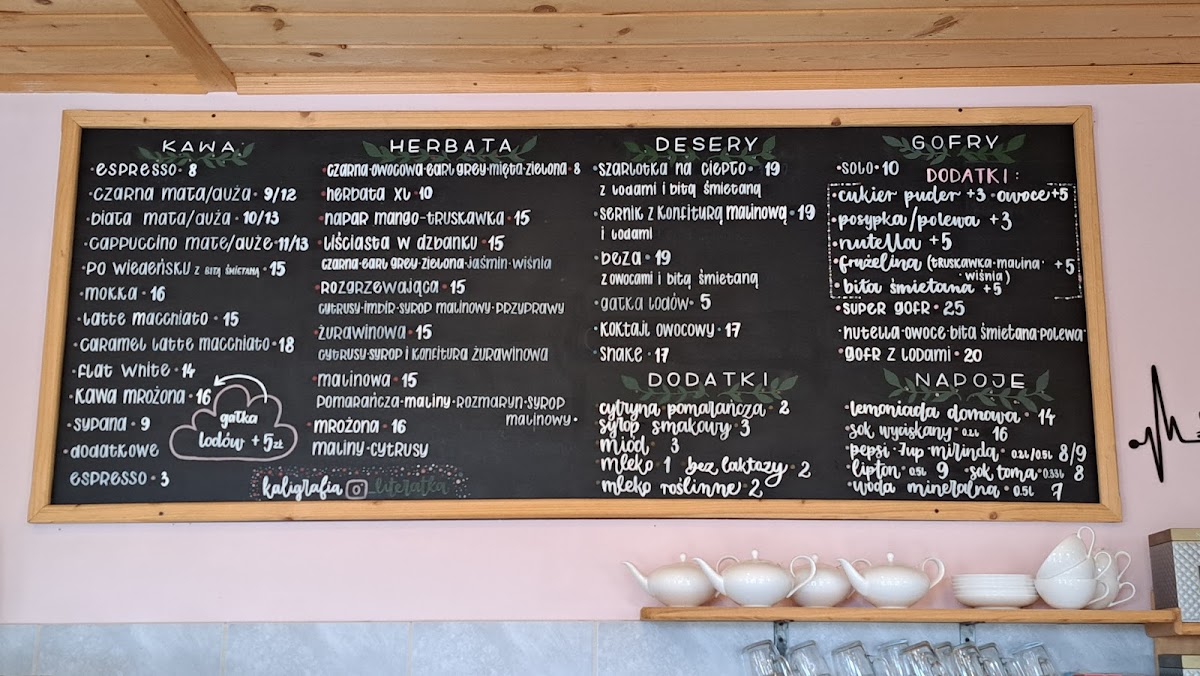 KAWA
•espresso• 8
•czarna mała/duża • 9/12
•biała mała/duża • 10/13
•cappuccino małe/duże •11/13
•po wiedeńsku z bitą śmietaną • 15
•mokka • 16
•latte macchiato • 15
•caramel latte macchiato •18
•flat white • 14
•kawa mrożona • 16
•sypana • 9
•dodatkowe
espresso • 3
gałka
lodów +5zł
HERBATA
•czarna•owocowa•earl grey•mięta•zielona • 8
•herbata XL • 10
•napar mango-truskawka • 15
•liściasta w dzbanku • 15
czarna•earl grey•zielona•jaśmin•wiśnia
•rozgrzewająca • 15
cytrusy•imbir•syrop malinowy•przyprawy
•żurawinowa • 15
cytrusy•syrop i konfitura żurawinowa
•malinowa • 15
pomarańcza•maliny•rozmaryn•syrop
malinowy•
•mrożona • 16
maliny•cytrusy
kaligrafia _literatka
DESERY
•szarlotka na ciepło• 19
z lodami i bitą śmietaną
•sernik z konfiturą malinową • 19
i lodami
•beza • 19
z owocami i bitą śmietaną
•gałka lodów• 5
•koktajl owocowy • 17
•shake • 17
DODATKI
cytryna pomarańcza • 2
syrop smakowy • 3
miód • 3
mleko 1 bez laktozy • 2
mleko roślinne • 2
GOFRY
•solo • 10
DODATKI:
•cukier puder +3 •owoce +5
•posypka/polewa +3
•nutella +5
•frużelina (truskawka•malina• +5
•wiśnia)
•bita śmietana +5
•super gofr • 25
•nutella•owoce•bita śmietana•polewa•
•gofr z lodami • 20
NAPOJE
•lemoniada domowa • 14
•sok wyciskany • 0.2L 16
•pepsi•7up mirinda • 0.2L/0.5L 8/9
•lipton • 0.5L 9 sok toma • 0.33L 8
•woda mineralna • 0.5L 7